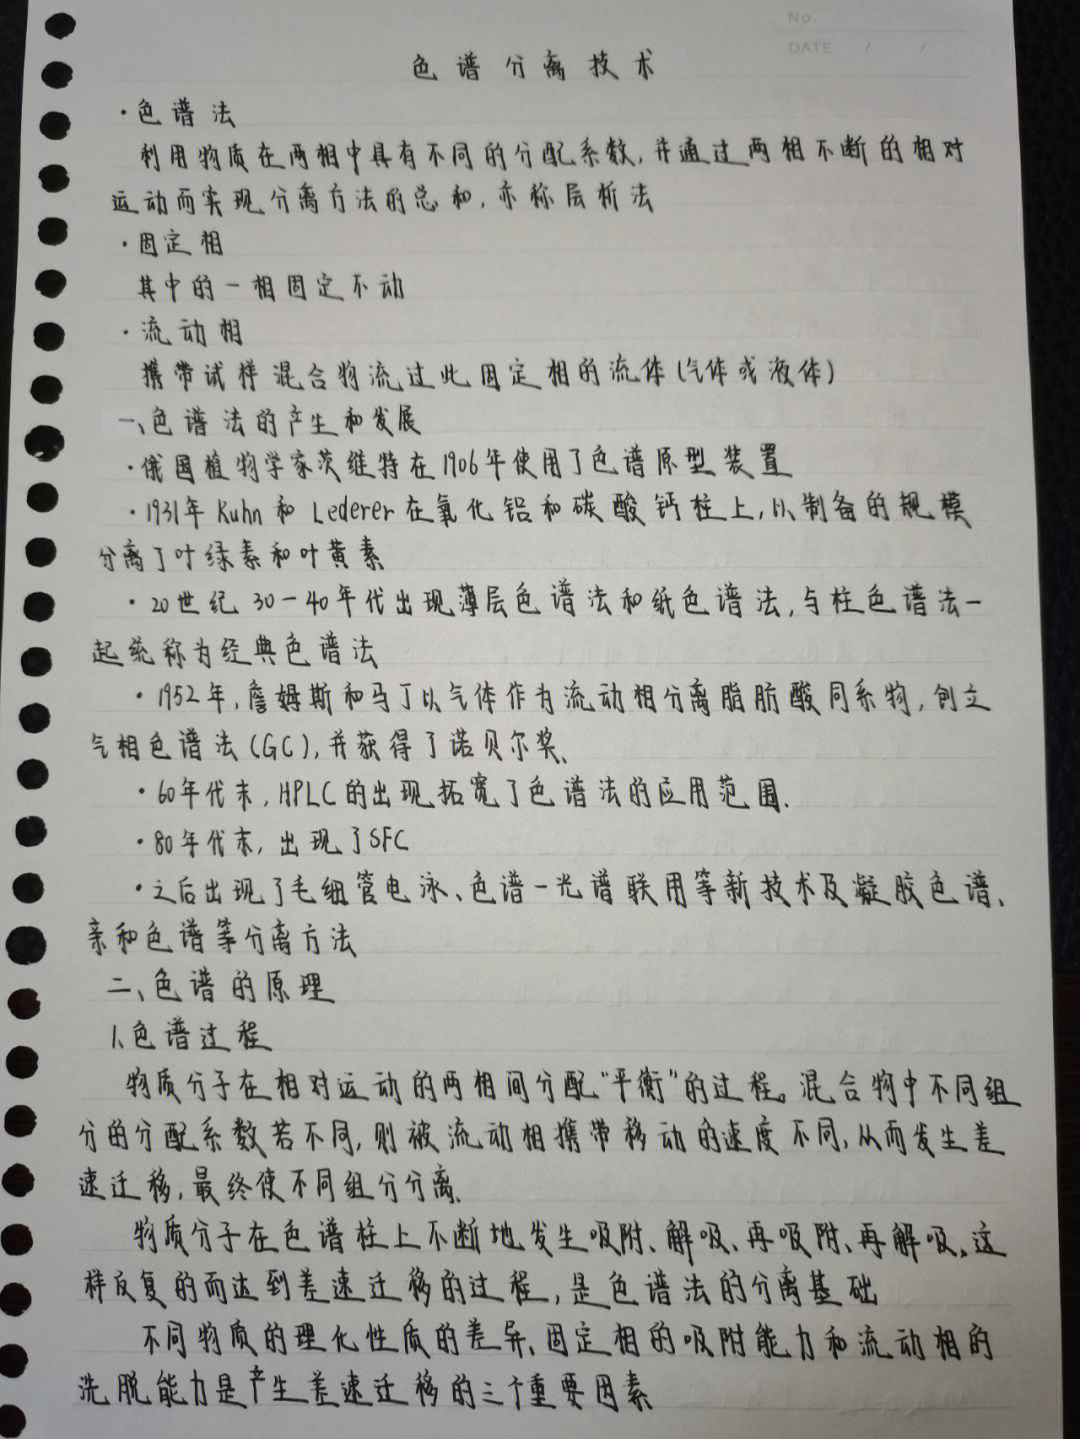 No.
DATE / /
色谱分离技术
·色谱法
利用物质在两相中具有不同的分配系数,并通过两相不断的相对
运动而实现分离方法的总和,亦称层析法
·固定相
其中的一相固定不动
·流动相
携带试样混合物流过此固定相的流体(气体或液体)
一、色谱法的产生和发展
·俄国植物学家茨维特在1906年使用了色谱原型装置
·1931年Kuhn和Lederer在氧化铝和碳酸钙柱上,以制备的规模
分离了叶绿素和叶黄素
·20世纪30-40年代出现薄层色谱法和纸色谱法,与柱色谱法一
起统称为经典色谱法
·1952年,詹姆斯和马丁以气体作为流动相分离脂肪酸同系物,创立
气相色谱法(GC),并获得了诺贝尔奖、
·60年代末,HPLC的出现拓宽了色谱法的应用范围.
·80年代末,出现了SFC
·之后出现了毛细管电泳、色谱-光谱联用等新技术及凝胶色谱、
亲和色谱等分离方法
二、色谱的原理
1.色谱过程
物质分子在相对运动的两相间分配“平衡”的过程。混合物中不同组
分的分配系数若不同,则被流动相携带移动的速度不同,从而发生差
速迁移,最终使不同组分分离.
物质分子在色谱柱上不断地发生吸附、解吸、再吸附、再解吸。这
样反复的而达到差速迁移的过程,是色谱法的分离基础
不同物质的理化性质的差异、固定相的吸附能力和流动相的
洗脱能力是产生差速迁移的三个重要因素